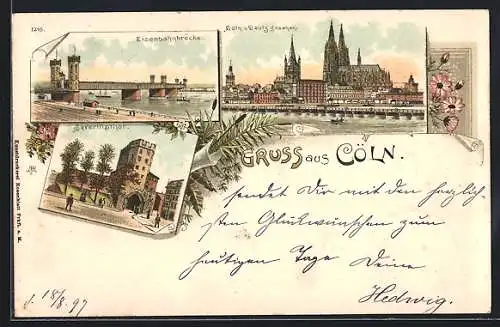 1216.
Eisenbahnbrücke.
Cöln v. Deutz gesehen.
Severinsthor.
Kunstdruckerei Rosenblatt Frkft. a. M.
GRUSS aus CÖLN.
sendet Dir mit den herzlich-
sten Glückwünschen zum
heutigen Tage Deine
Hedwig.
d. 18/8. 97